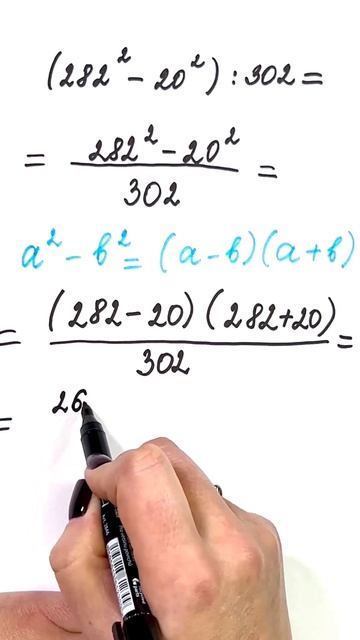 (282² - 20²) : 302 =
= 282² - 20² / 302 =
a² - b² = (a - b)(a + b)
= (282 - 20) (282 + 20) / 302 =
= 26